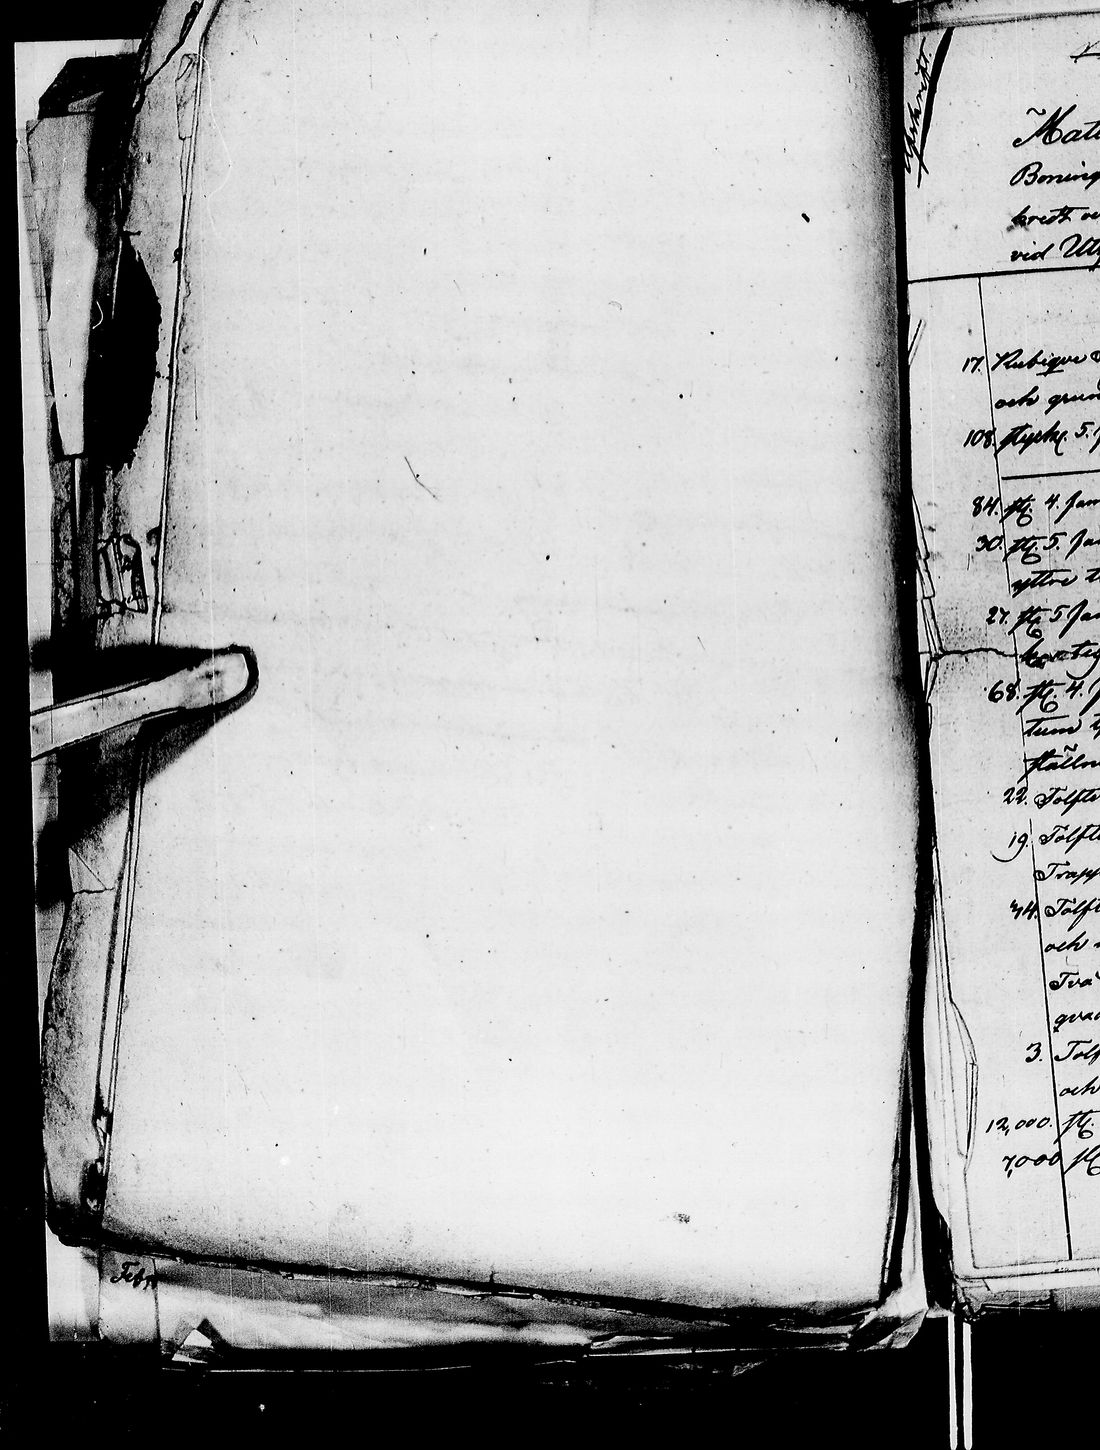 Afskrift.
Mate
Boning
kredt oc
vid Uts
17. Kubique
och grun
108. stycke. 5.
84. st. 4. fam
30. st. 5. fam
yttre t
27. st. 5 fam
68. st. 4. f
tum t
ställn
22. Tolfte
19. Tolfte
Trapp
34. Tolft
och
Två
qvad
3. Tolf
och
12,000. st.
7,000 st
Febr